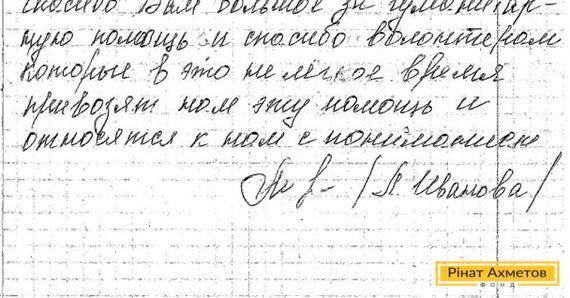 спасибо Вам большое за гуманитар-
ную помощь и спасибо волонтерам
которые в это нелегкое время
привозят нам эту помощь и
относятся к нам с пониманием
/ Л. Иванова /
Рінат Ахметов
ФОНД